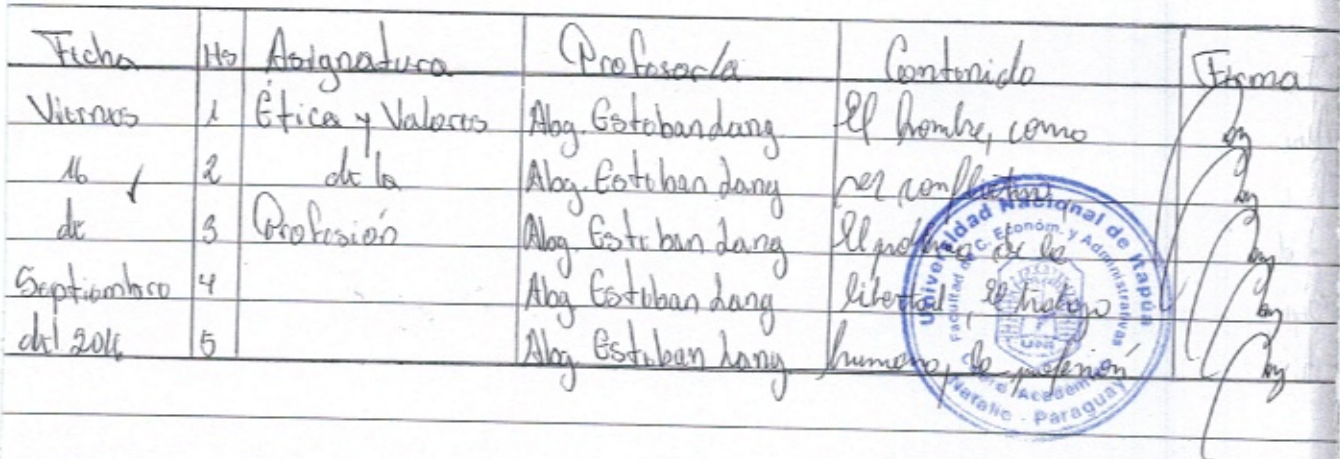 Fecha Hs Asignatura Profesor/a Contenido Firma
Viernes 1 Ética y Valores Abg. Esteban Lang El hombre, como
16 2 de la Abg. Esteban Lang ser conflictivo
de 3 Profesión Abg. Esteban Lang El problema de la
Septiembre 4 Abg. Esteban Lang libertad, El trabajo
del 2016 5 Abg. Esteban Lang humano, la profesión
Universidad Nacional de Itapúa
Facultad de C. Económ. y Administrativas
UNI
Académica
Natalio - Paraguay